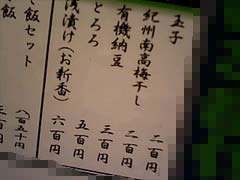 玉子 二百円
紀州南高梅干し 二百円
有機納豆 三百円
とろろ 五百円
浅漬け(お新香) 六百円
飯セット (八百五十円)
飯 三百円